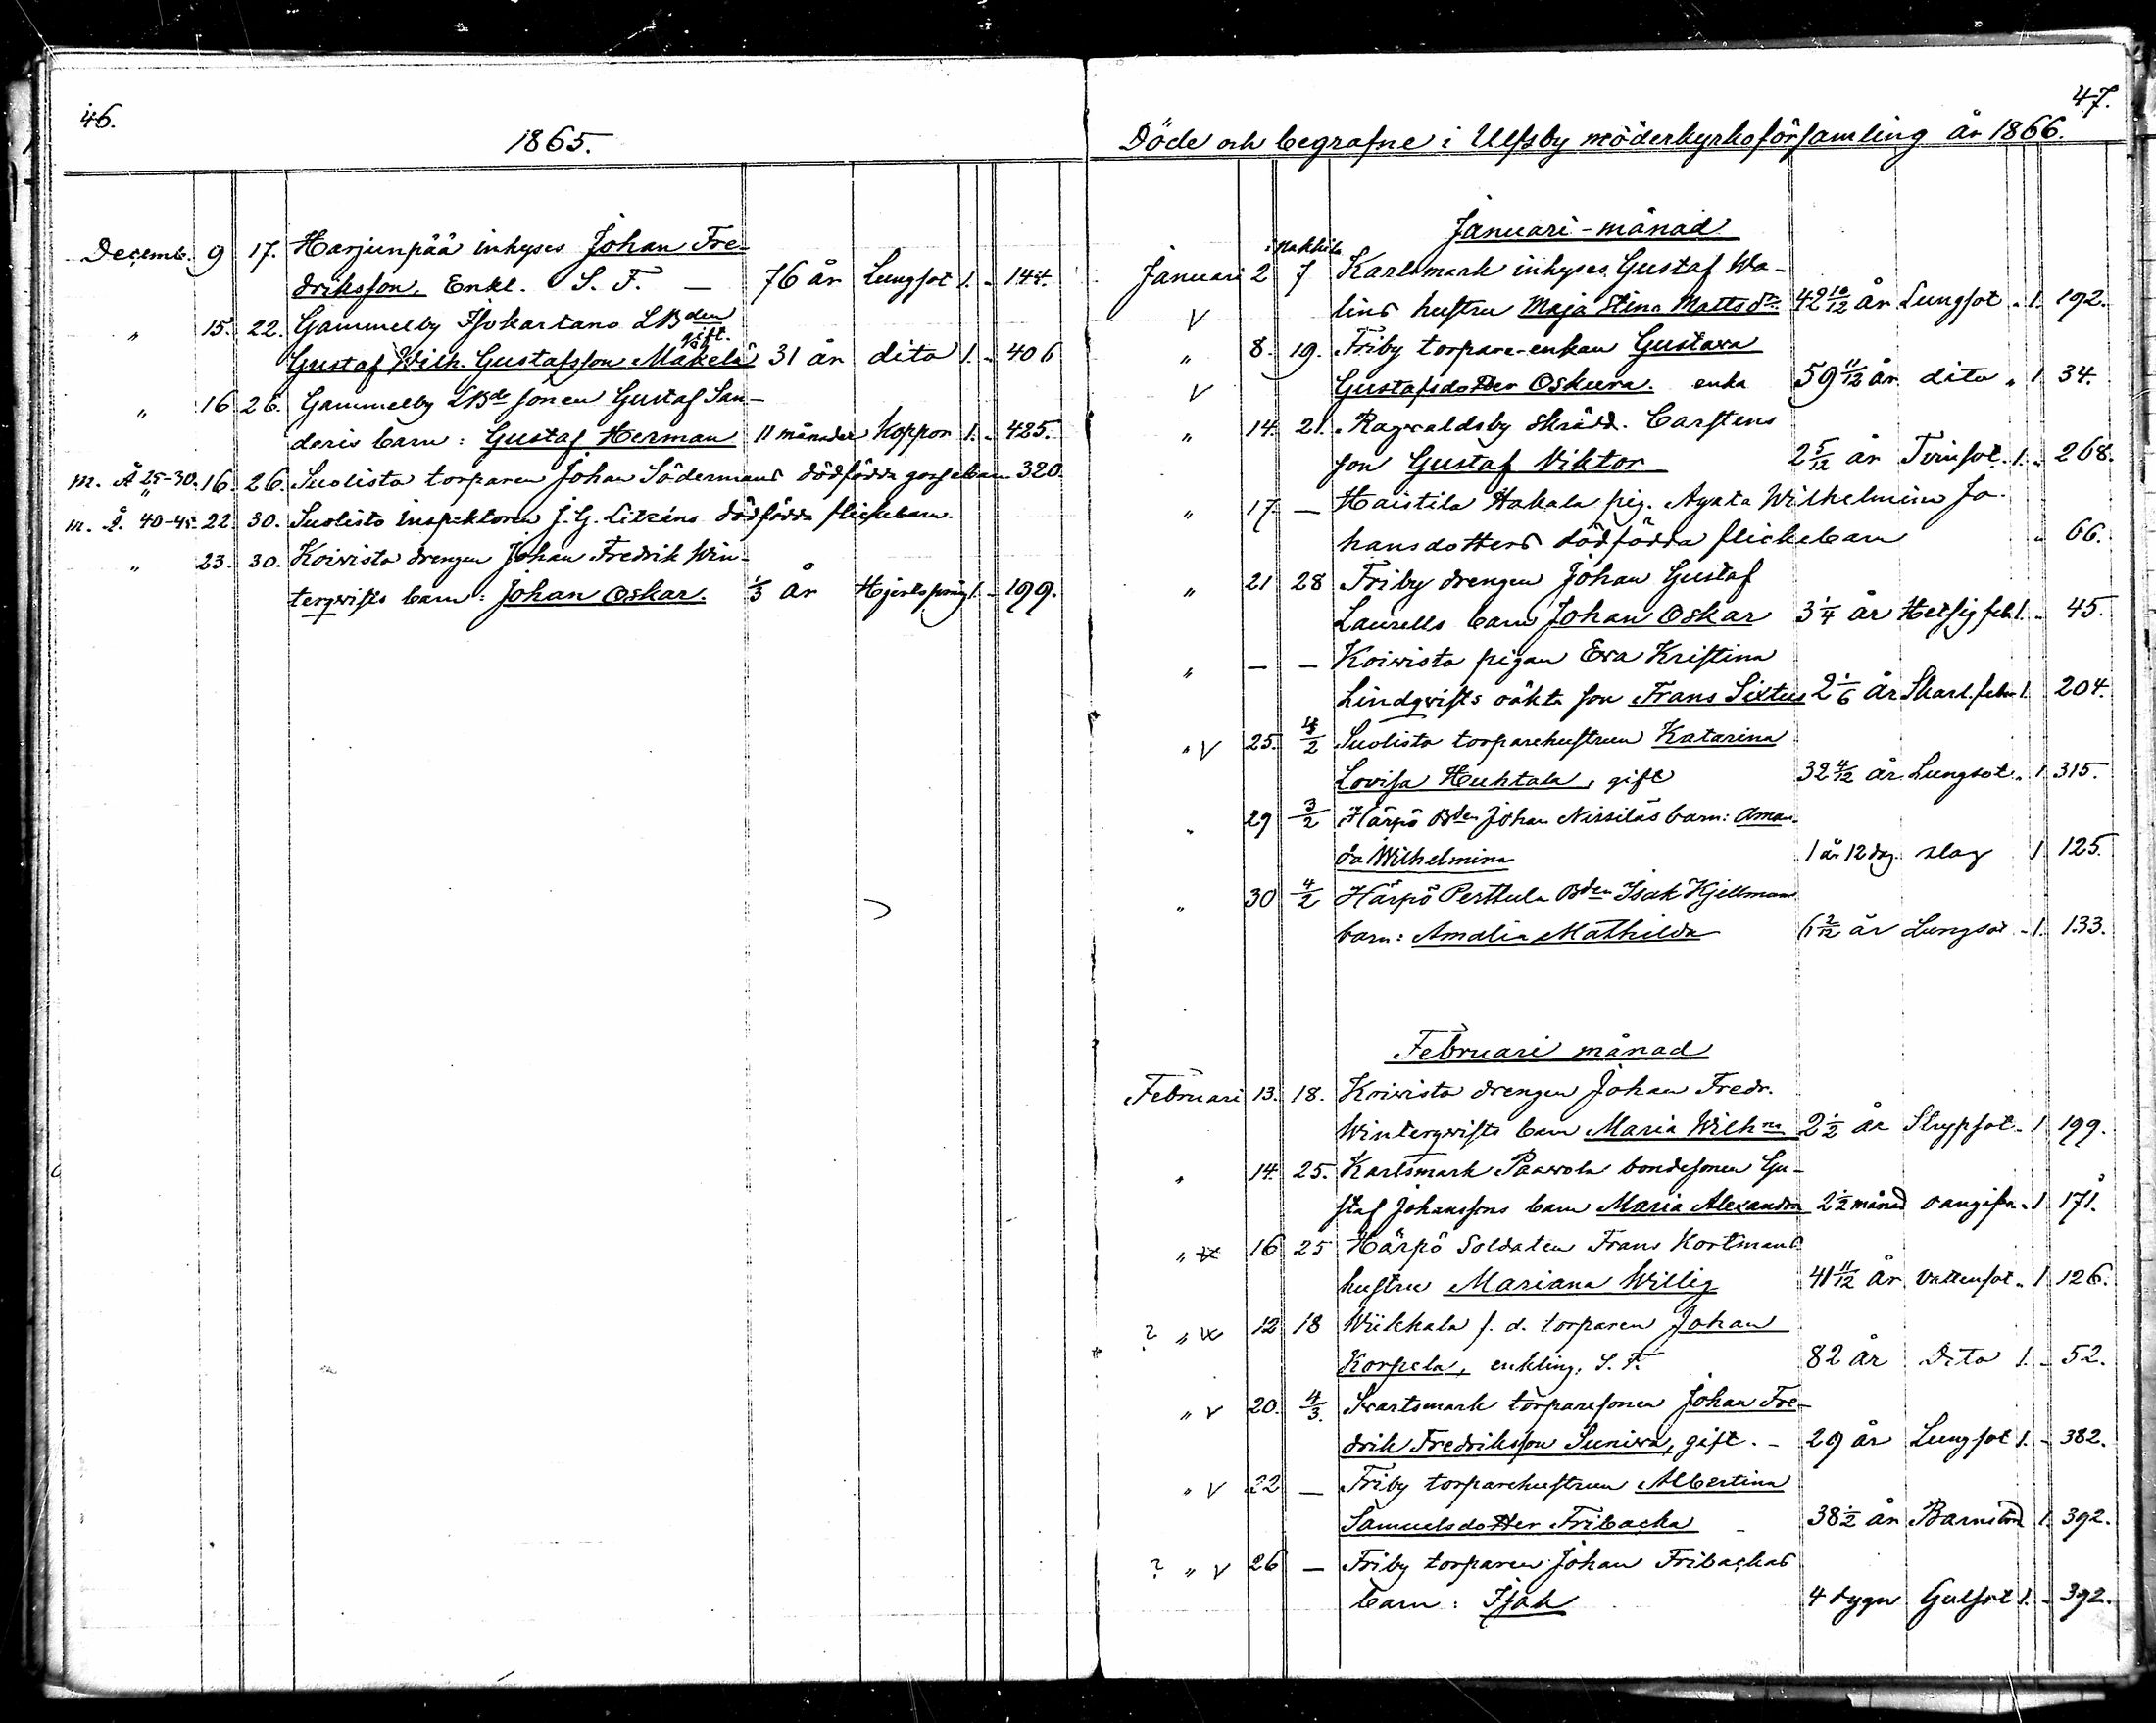 46.
1865.
Decemb. 9 17. Harjunpää inhyses Johan Fre-
driksson. Enkl. S. F. — 76 år Lungsot 1. 144.
" 15. 22. Gammelby Isokartano LBden
gift.
Gustaf Wilh. Gustafsson Mäkelä 31 år dito 1. 406
" 16 26. Gammelby LBde sonen Gustaf San-
deris barn: Gustaf Herman 11 månader Koppor 1. 425.
m. Å 25-30. 16. 26. Suolisto torparen Johan Södermans dödfödda gossebarn. 320.
m. Å. 40-45. 22. 30. Suolisto Inspektoren J. G. Litzéns dödfödda flickebarn.
" 23. 30. Koivisto drengen Johan Fredrik Win-
terqvists barn: Johan Oskar. 1/3 år Hjertspring 1. - 199.
47.
Döde och begrafne i Ulfsby möderkyrkoförsamling år 1866.
Januari - månad
i Nakkila
Januari 2 7 Karlsmark inhyses Gustaf Wa-
V lins hustru Maja Stina Mattsdr. 42 10/12 år Lungsot 1. 192.
" 8. 19. Friby torpare-enkan Gustava
V Gustafsdotter Oskura. enka 59 11/12 år dito " 1 34.
" 14. 21. Ragvaldsby skrädd. Carstens
son Gustaf Viktor 2 5/12 år Tvinsot. 1. 268.
" 17. — Haistila Hakala pig. Agata Wilhelmina Jo-
hansdotters dödfödda flickebarn " 66.
" 21 28 Friby drengen Johan Gustaf
Laurells barn Johan Oskar 3 1/4 år Hetsig feb. 1. 45.
" — — Koivisto pigan Eva Kristina
Lindqvists oäkta son Frans Sixtus 2 1/6 år Skarl. feber 1. 204.
" V 25. 4/2 Suolisto torparehustrun Katarina
Lovisa Huhtala, gift 32 4/12 år Lungsot. 1. 315.
" 29 3/2 Härpö Bden Johan Nissiläs barn: Aman-
da Wilhelmina 1 år 12 dag. slag 1 125.
" 30 4/2 Härpö Perttula Bden Isak Kjellmans
barn: Amalia Mathilda 6 2/12 år Lungsot - 1. 133.
Februari månad
Februari 13. 18. Koivisto drengen Johan Fredr.
Winterqvists barn Maria Wilhna 2 1/2 år Strypsot - 1 199.
" 14. 25. Karlsmark Paavola bondesonen Gu-
staf Johanssons barn Maria Alexandra 2 1/2 månad oangifn. 1 171.
" 16 25 Härpö Soldaten Frans Kortmans
hustru Mariana Willig 41 11/12 år Vattensot. 1 126.
? " 12 18 Wiikkala f. d. torparen Johan
Korpela, enkling. S. F. 82 år Dito 1. 52.
" V 20. 4/3. Svartsmark torparesonen Johan Fre-
drik Fredriksson Suniva, gift. - 29 år Lungsot 1. - 382.
" V 22 — Friby torparehustrun Albertina
Samuelsdotter Fribacka - 38 1/2 år Barnsbörd 1. 392.
? " V 26 — Friby torparen Johan Fribackas
barn: Isak 4 dygn Gulsot 1. - 392.